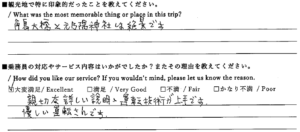 ■観光地で特に印象的だったことを教えてください。
/ What was the most memorable thing or place in this trip?
角島大橋と元乃隅神社は絶景です
■乗務員の対応やサービス内容はいかがでしたか?またその理由を教えてください。
/ How did you like our service? If you wouldn't mind, please let us know the reason.
☑大変満足/ Excellent □満足 / Very Good □不満 / Fair □かなり不満 / Poor
親切丁寧詳しい説明と運転技術が上手です。
優しい運転さんです。